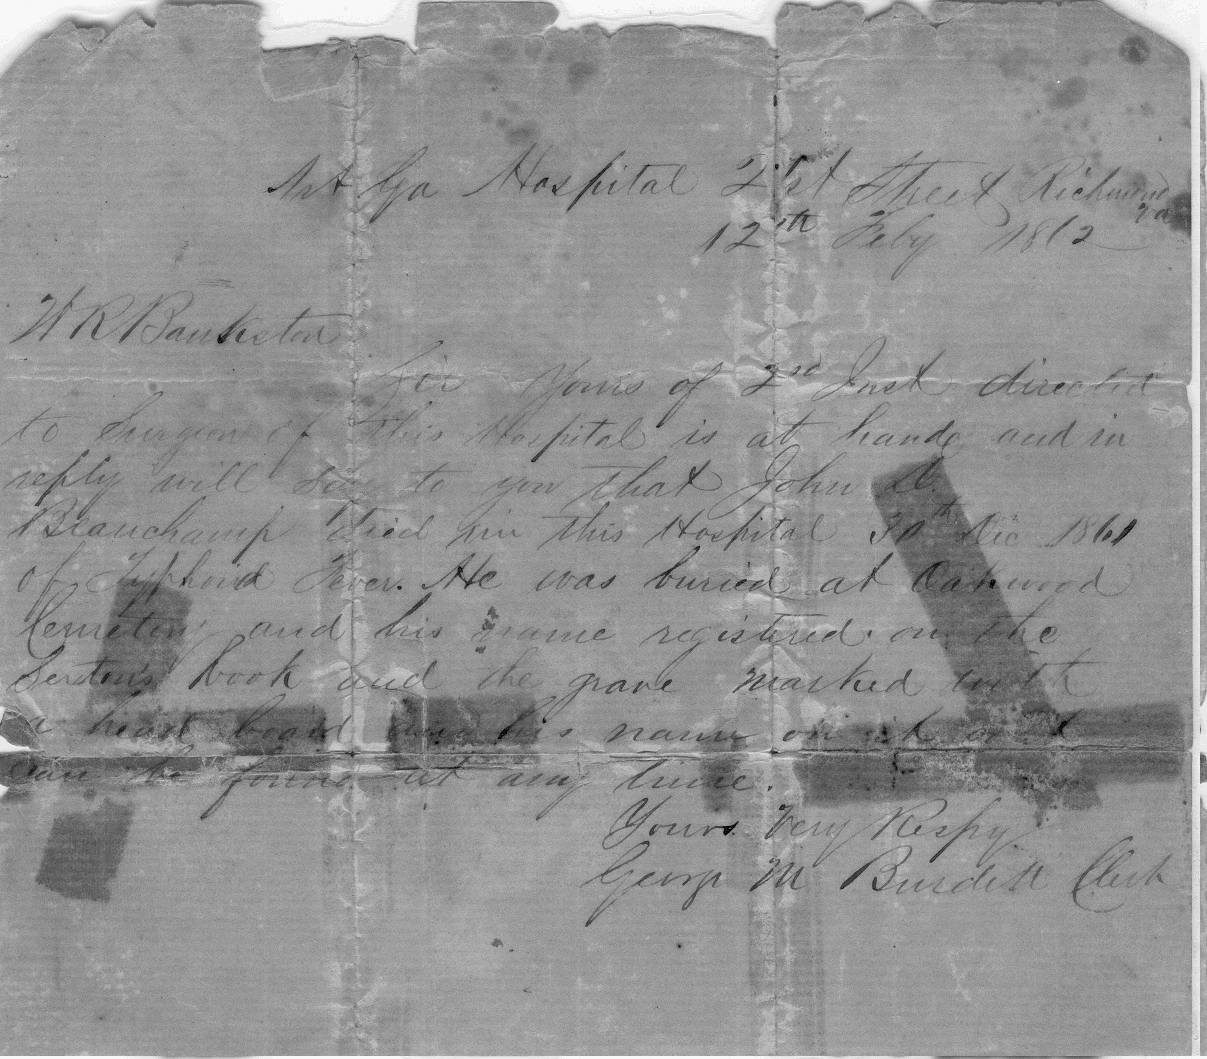 1st Ga Hospital 21st Street Richmond
Va
12th Feby 1862
W R Bankston
Sir Yours of 2nd Inst directed
to Surgeon of this Hospital is at hand and in
reply will say to you that John D.
Beauchamp died in this Hospital 30th Dec 1861
of Typhoid Fever. He was buried at Oakwood
Cemetery and his name registered on the
Sexton's book and the grave marked with
a head board his name on it and
can be found at any time.
Yours Very Respy
George M Burdett Clerk